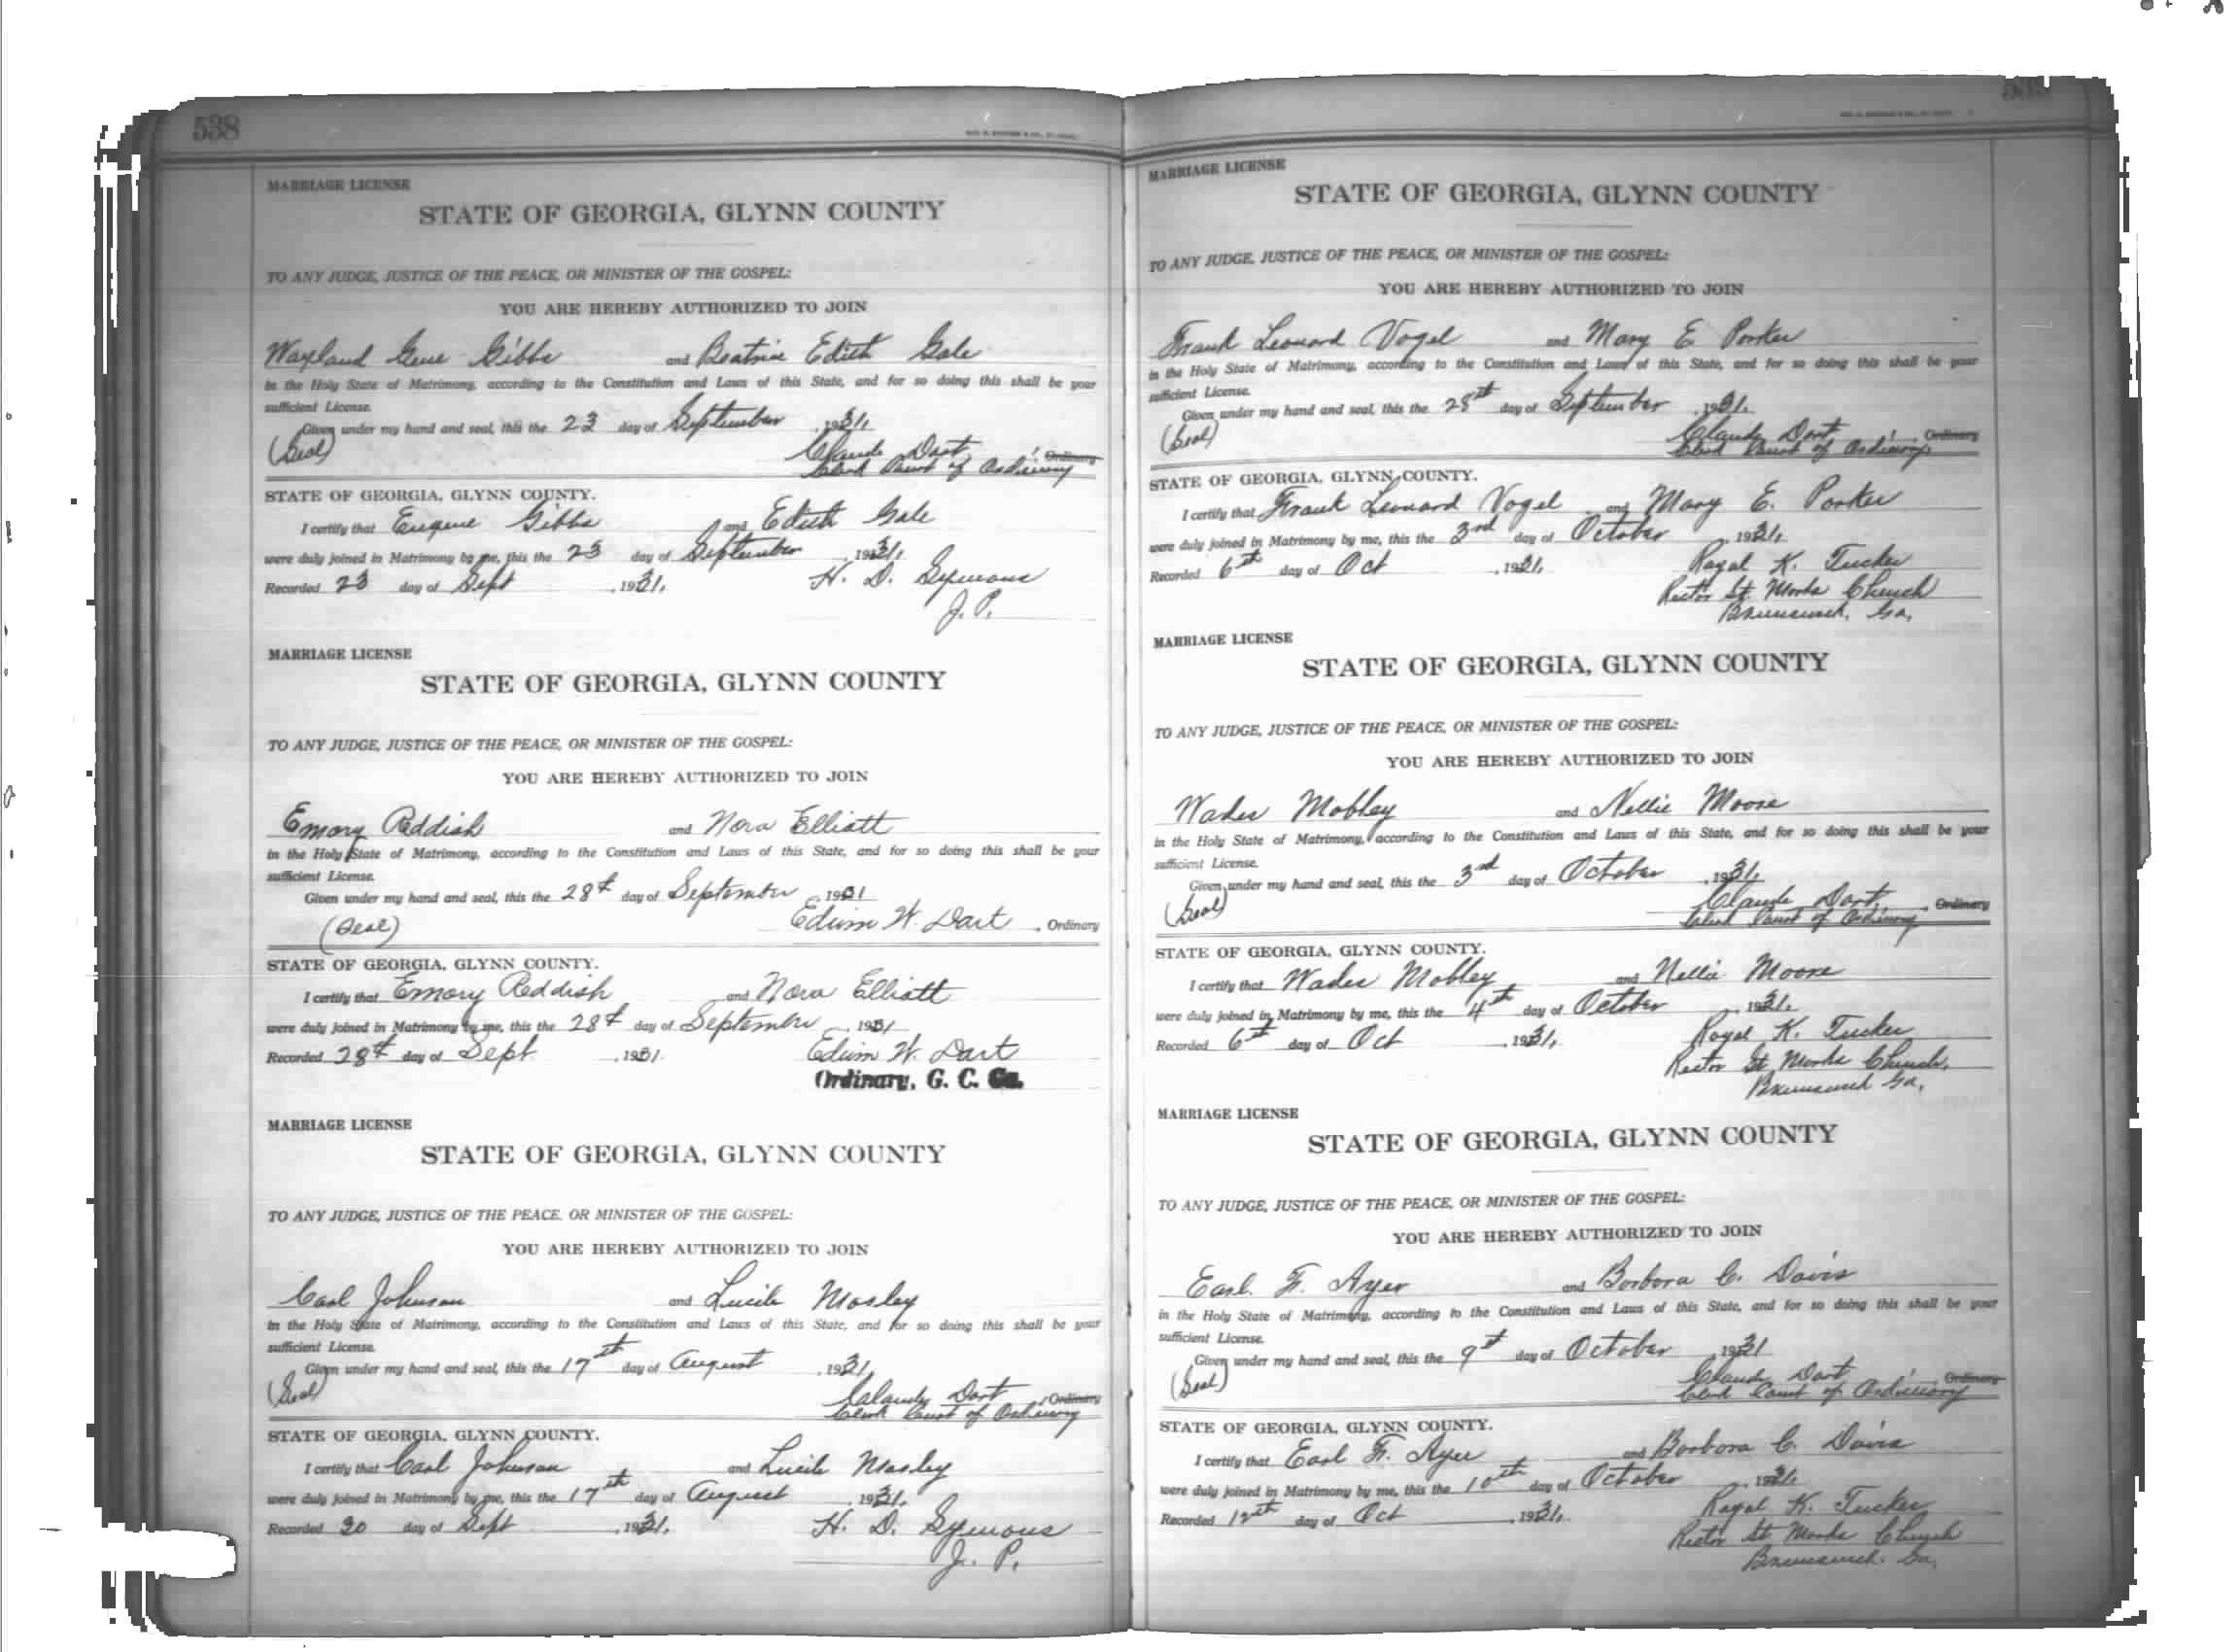 538
MARRIAGE LICENSE
STATE OF GEORGIA, GLYNN COUNTY
TO ANY JUDGE, JUSTICE OF THE PEACE, OR MINISTER OF THE GOSPEL:
YOU ARE HEREBY AUTHORIZED TO JOIN
Wayland Gene Gibbs and Beatrice Edith Gale
in the Holy State of Matrimony, according to the Constitution and Laws of this State, and for so doing this shall be your
sufficient License.
Given under my hand and seal, this the 23 day of September , 1931,
(Seal) Claude Dart, Ordinary
Clerk Court of Ordinary
STATE OF GEORGIA, GLYNN COUNTY.
I certify that Eugene Gibbs and Edith Gale
were duly joined in Matrimony by me, this the 23 day of September , 1931,
Recorded 23 day of Sept , 1931. H. D. Symons
J. P.
MARRIAGE LICENSE
STATE OF GEORGIA, GLYNN COUNTY
TO ANY JUDGE, JUSTICE OF THE PEACE, OR MINISTER OF THE GOSPEL:
YOU ARE HEREBY AUTHORIZED TO JOIN
Emory Reddish and Nora Elliott
in the Holy State of Matrimony, according to the Constitution and Laws of this State, and for so doing this shall be your
sufficient License.
Given under my hand and seal, this the 28th day of September , 1931
(Seal) Edwin W. Dart , Ordinary
STATE OF GEORGIA, GLYNN COUNTY.
I certify that Emory Reddish and Nora Elliott
were duly joined in Matrimony by me, this the 28th day of September , 1931
Recorded 28th day of Sept , 1931 Edwin W. Dart
Ordinary, G. C. Ga.
MARRIAGE LICENSE
STATE OF GEORGIA, GLYNN COUNTY
TO ANY JUDGE, JUSTICE OF THE PEACE, OR MINISTER OF THE GOSPEL:
YOU ARE HEREBY AUTHORIZED TO JOIN
Carl Johnson and Lucile Mosley
in the Holy State of Matrimony, according to the Constitution and Laws of this State, and for so doing this shall be your
sufficient License.
Given under my hand and seal, this the 17th day of August , 1931,
(Seal) Claude Dart, Ordinary
Clerk Court of Ordinary
STATE OF GEORGIA, GLYNN COUNTY.
I certify that Carl Johnson and Lucile Mosley
were duly joined in Matrimony by me, this the 17th day of August , 1931,
Recorded 30 day of Sept , 1931. H. D. Symons
J. P.
MARRIAGE LICENSE
STATE OF GEORGIA, GLYNN COUNTY
TO ANY JUDGE, JUSTICE OF THE PEACE, OR MINISTER OF THE GOSPEL:
YOU ARE HEREBY AUTHORIZED TO JOIN
Frank Leonard Vogel and Mary E Parker
in the Holy State of Matrimony, according to the Constitution and Laws of this State, and for so doing this shall be your
sufficient License.
Given under my hand and seal, this the 28th day of September , 1931.
(Seal) Claude Dart, Ordinary
Clerk Court of Ordinary
STATE OF GEORGIA, GLYNN COUNTY.
I certify that Frank Leonard Vogel and Mary E. Parker
were duly joined in Matrimony by me, this the 3rd day of October , 1931,
Recorded 6th day of Oct , 1931, Royal K. Tucker
Rector St. Marks Church
Brunswick, Ga,
MARRIAGE LICENSE
STATE OF GEORGIA, GLYNN COUNTY
TO ANY JUDGE, JUSTICE OF THE PEACE, OR MINISTER OF THE GOSPEL:
YOU ARE HEREBY AUTHORIZED TO JOIN
Wader Mobley and Nellie Moore
in the Holy State of Matrimony, according to the Constitution and Laws of this State, and for so doing this shall be your
sufficient License.
Given under my hand and seal, this the 3rd day of October , 1931,
(Seal) Claude Dart, Ordinary
Clerk Court of Ordinary
STATE OF GEORGIA, GLYNN COUNTY.
I certify that Wader Mobley and Nellie Moore
were duly joined in Matrimony by me, this the 4th day of October , 1931,
Recorded 6th day of Oct , 1931, Royal K. Tucker
Rector St Marks Church,
Brunswick Ga,
MARRIAGE LICENSE
STATE OF GEORGIA, GLYNN COUNTY
TO ANY JUDGE, JUSTICE OF THE PEACE, OR MINISTER OF THE GOSPEL:
YOU ARE HEREBY AUTHORIZED TO JOIN
Earl. F. Ayer and Borbora C. Davis
in the Holy State of Matrimony, according to the Constitution and Laws of this State, and for so doing this shall be your
sufficient License.
Given under my hand and seal, this the 9th day of October , 1931
(Seal) Claude Dart, Ordinary
Clerk Court of Ordinary
STATE OF GEORGIA, GLYNN COUNTY.
I certify that Earl F. Ayer and Borbora C. Davis
were duly joined in Matrimony by me, this the 10th day of October , 1931,
Recorded 12th day of Oct , 1931, Royal K. Tucker
Rector St Marks Church
Brunswick. Ga,